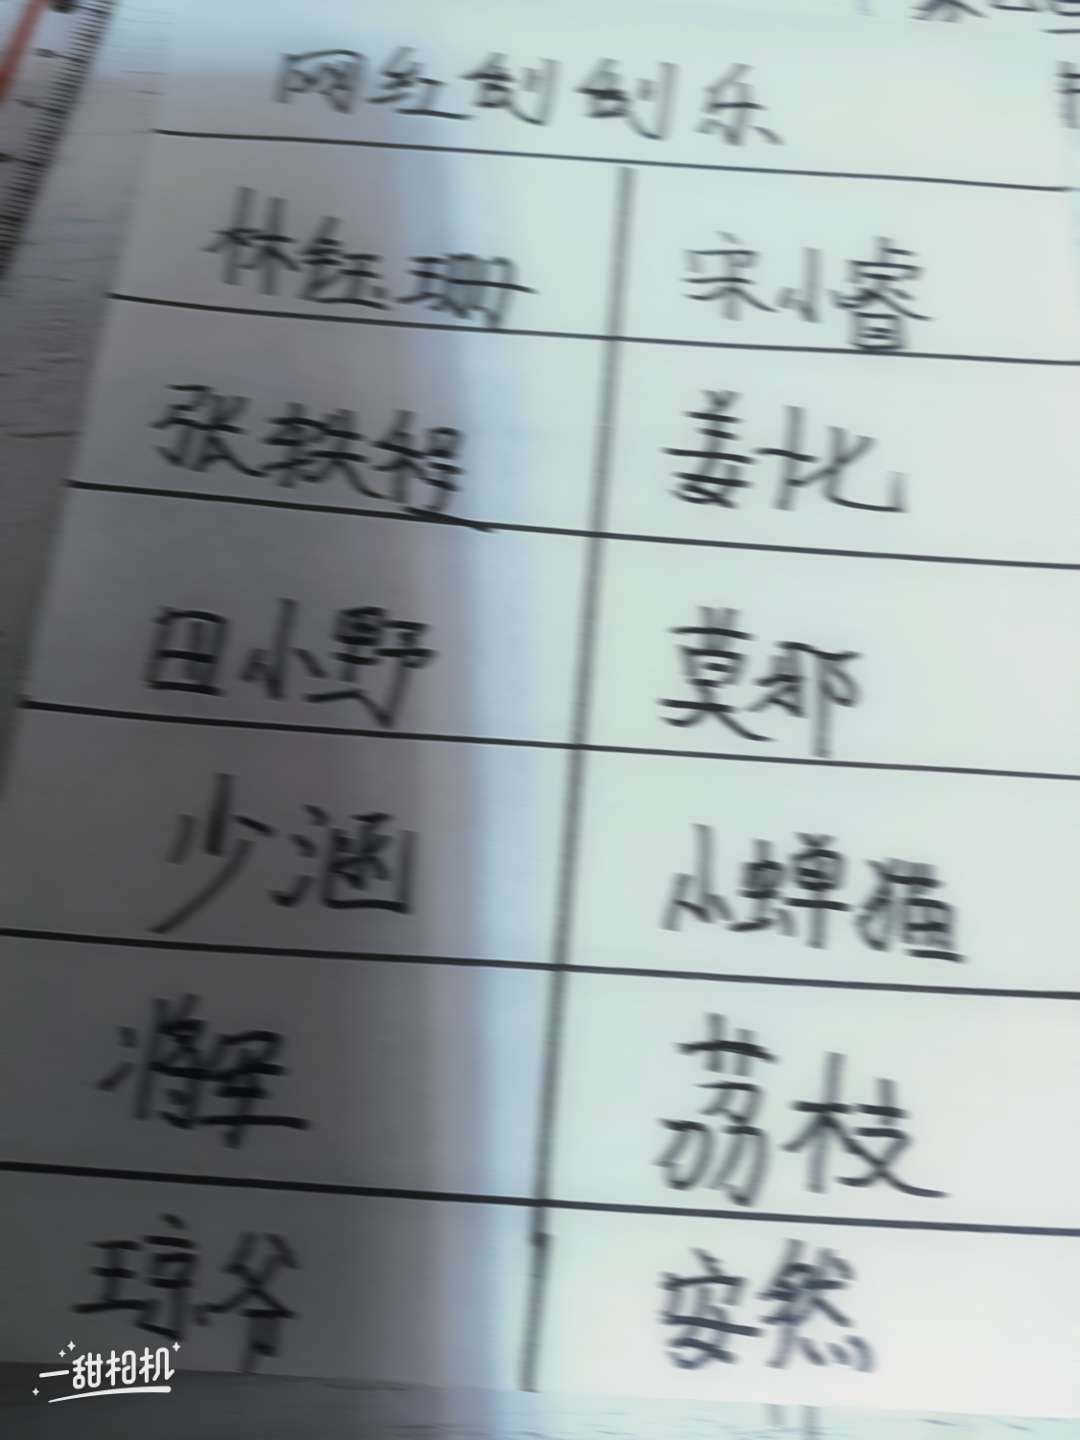 网红刮刮乐
林钰珊 宋小睿
张轶程 姜比
田小野 莫邪
少涵 小蝉猫
将军 荔枝
琼爷 安然
一甜相机